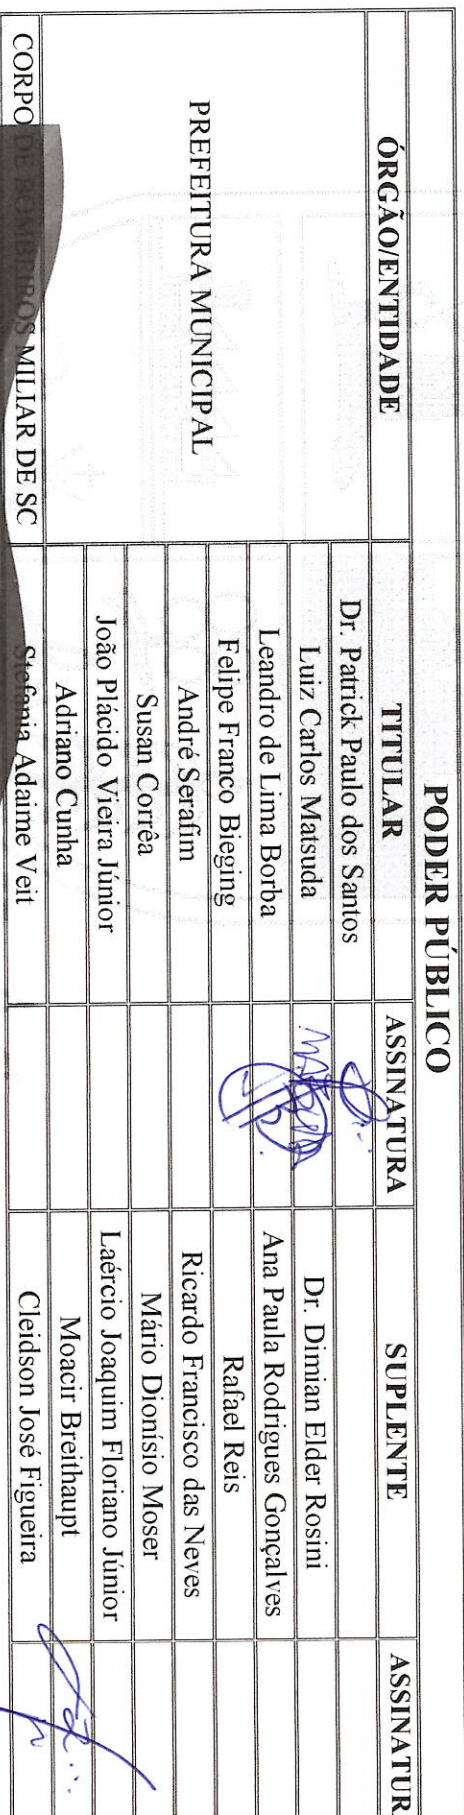 PODER PÚBLICO
ÓRGÃO/ENTIDADE TITULAR ASSINATURA SUPLENTE ASSINATUR
PREFEITURA MUNICIPAL
Dr. Patrick Paulo dos Santos
Luiz Carlos Matsuda Dr. Dimian Elder Rosini
Leandro de Lima Borba Ana Paula Rodrigues Gonçalves
Felipe Franco Bieging Rafael Reis
André Serafim Ricardo Francisco das Neves
Susan Corrêa Mário Dionísio Moser
João Plácido Vieira Júnior Laércio Joaquim Floriano Júnior
Adriano Cunha Moacir Breithaupt
CORPO DE BOMBEIROS MILIAR DE SC Stefania Adaime Veit Cleidson José Figueira